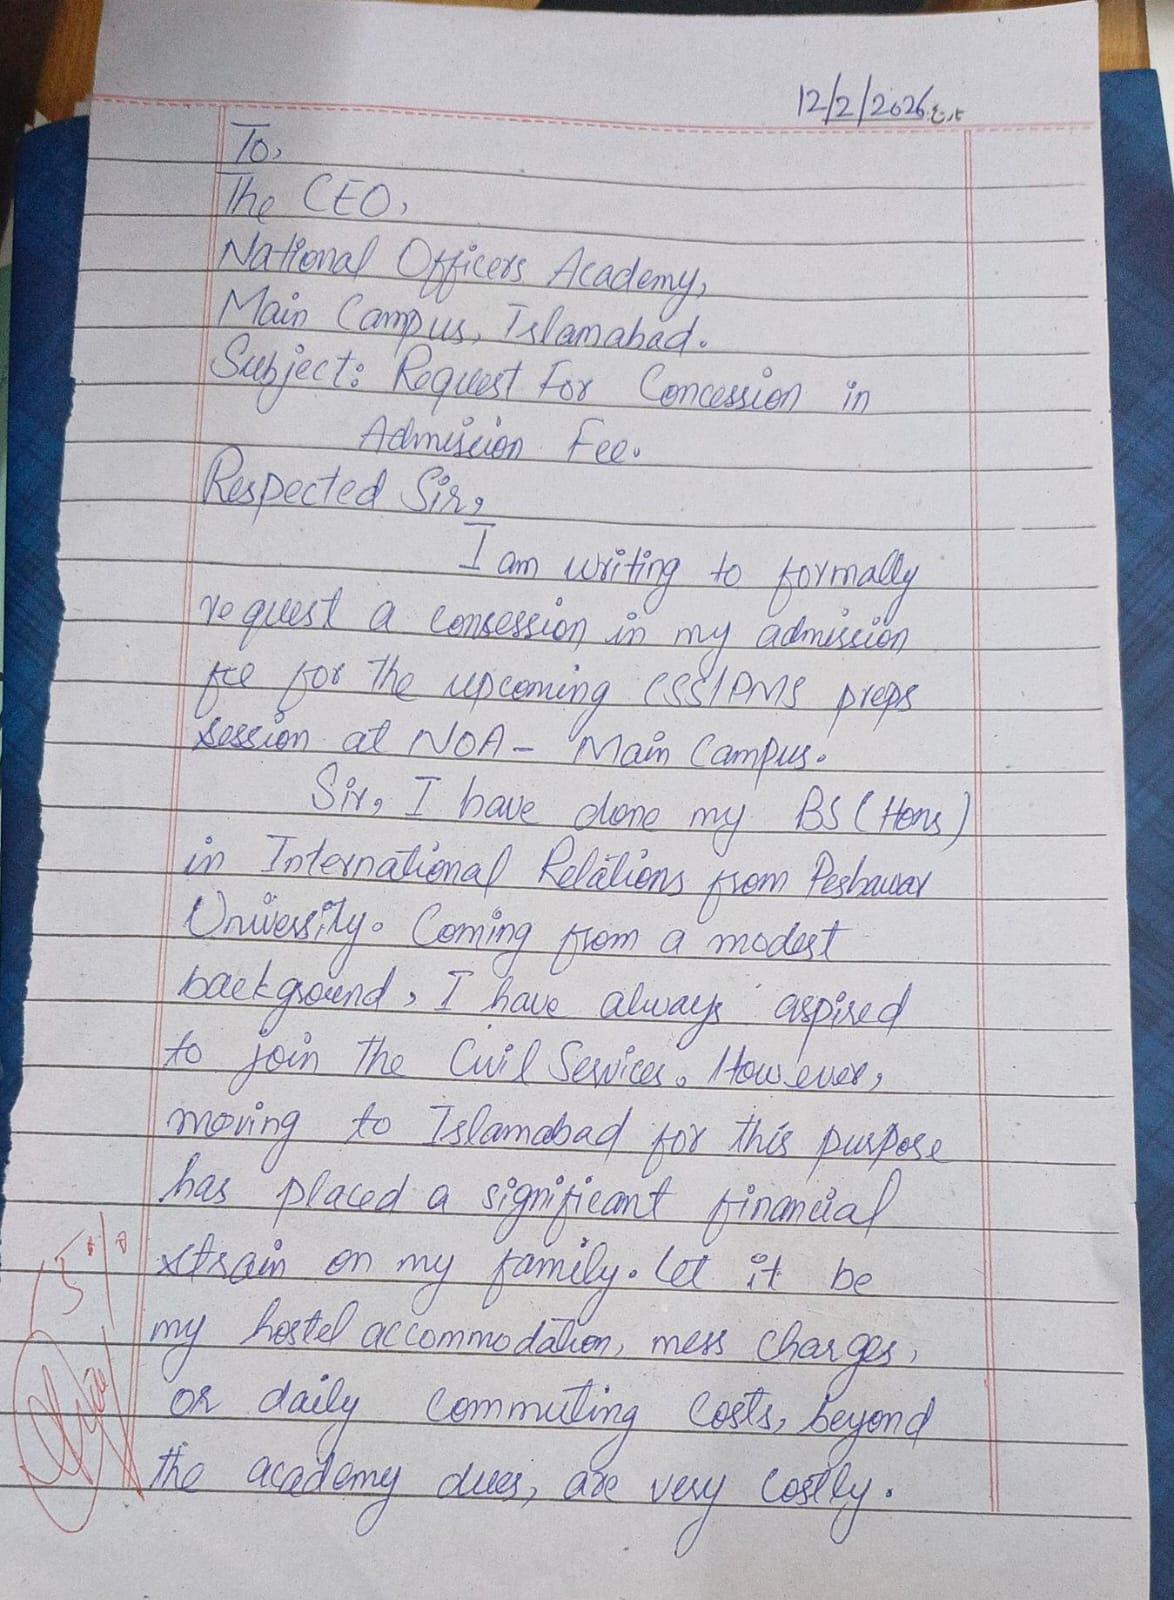 12/2/2026
To,
The CEO,
National Officers Academy,
Main Campus, Islamabad.
Subject: Request For Concession in
Admission Fee.
Respected Sir,
I am writing to formally
request a consession in my admission
fee for the upcoming CSS/PMS preps
session at NOA - Main Campus.
Sir, I have done my BS (Hons)
in International Relations from Peshawar
University. Coming from a modest
background, I have always aspired
to join the Civil Services. However,
moving to Islamabad for this purpose
has placed a significant financial
strain on my family. Let it be
my hostel accommodation, mess charges,
or daily commuting costs, beyond
the academy dues, are very costly.